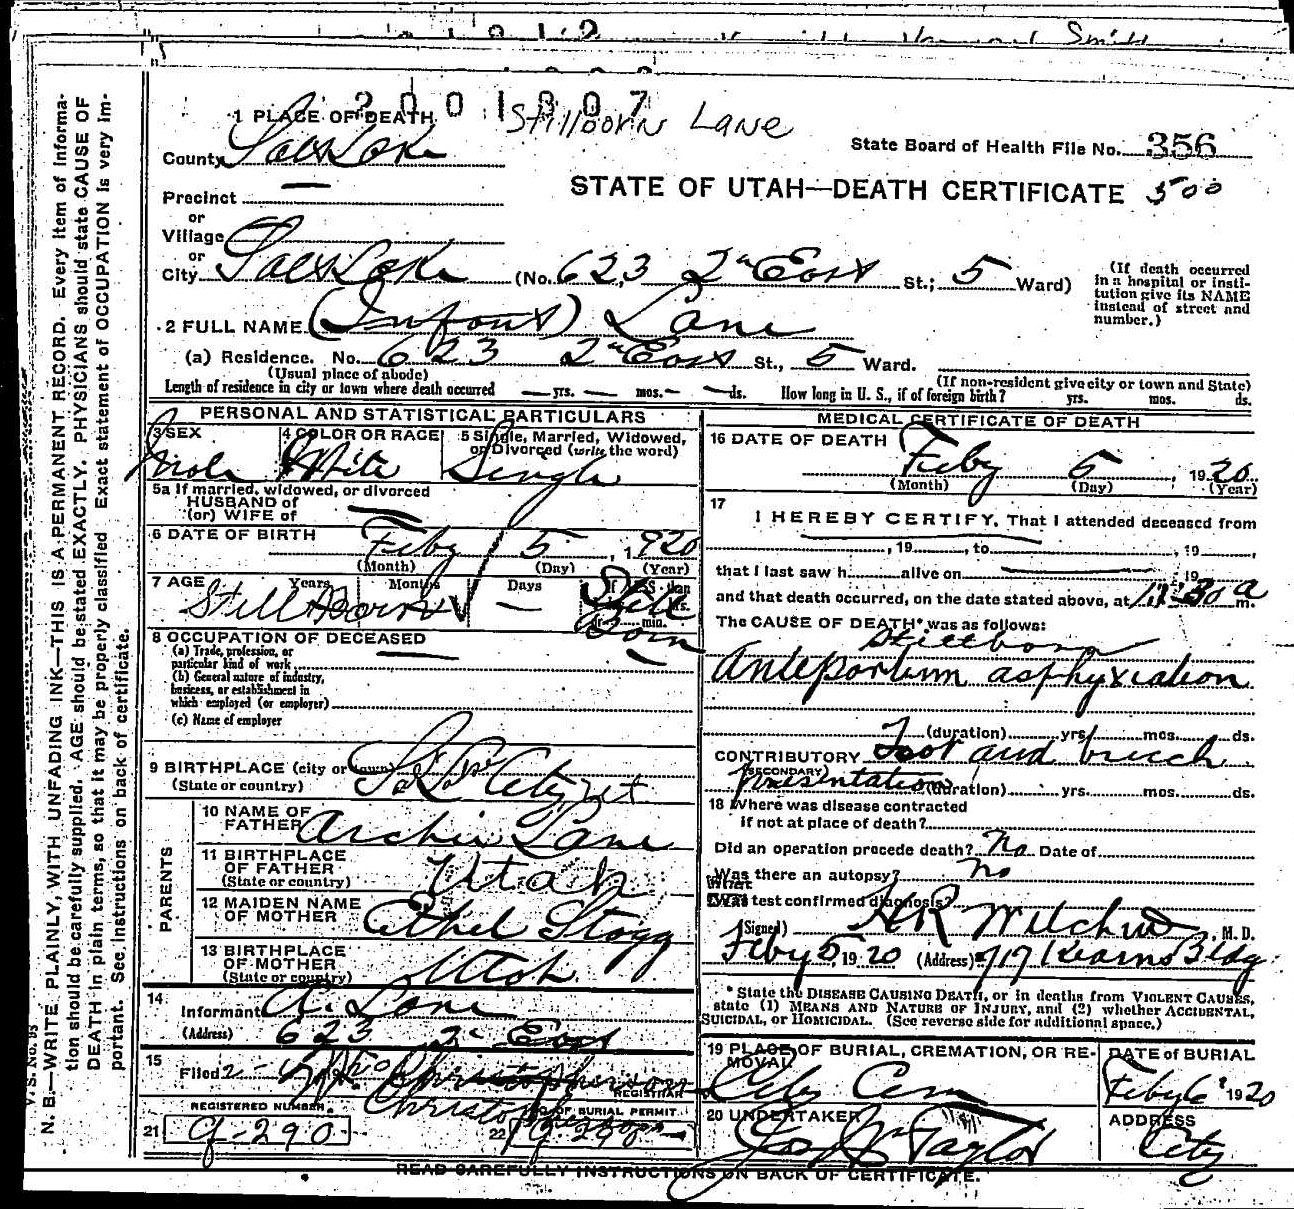 Smith
2001807
Stillborn Lane
1 PLACE OF DEATH
County Salt Lake
State Board of Health File No. 356
STATE OF UTAH—DEATH CERTIFICATE 500
Precinct
or
Village
or
City Salt Lake (No. 623 2nd East St.; 5 Ward)
(If death occurred in a hospital or insti-
tution give its NAME
instead of street and
number.)
2 FULL NAME (Infant) Lane
(a) Residence. No. 623 2nd East St., 5 Ward.
(Usual place of abode)
(If non-resident give city or town and State)
Length of residence in city or town where death occurred — yrs. — mos. — ds. How long in U. S., if of foreign birth? yrs. mos. ds.
PERSONAL AND STATISTICAL PARTICULARS
3 SEX
Male
4 COLOR OR RACE
White
5 Single, Married, Widowed,
or Divorced (write the word)
Single
5a If married, widowed, or divorced
HUSBAND of
(or) WIFE of —
6 DATE OF BIRTH Feby 5, 1920
(Month) (Day) (Year)
7 AGE Years Months Days
Still Born —
Still
Born
min.
8 OCCUPATION OF DECEASED
(a) Trade, profession, or
particular kind of work
(b) General nature of industry,
business, or establishment in
which employed (or employer)
(c) Name of employer
9 BIRTHPLACE (city or town)
(State or country)
PARENTS
10 NAME OF
FATHER Archie Lane
11 BIRTHPLACE
OF FATHER
(State or country) Utah
12 MAIDEN NAME
OF MOTHER Ethel Stogg
13 BIRTHPLACE
OF MOTHER
(State or country) Utah
14
Informant A. Lane
(Address) 623 2" East
15
Filed 2-
Christopherson
REGISTRAR
REGISTERED NUMBER.
21 g-290
NO. OF BURIAL PERMIT
22 g 290
MEDICAL CERTIFICATE OF DEATH
16 DATE OF DEATH
Feby 5, 1920
(Month) (Day) (Year)
17
I HEREBY CERTIFY, That I attended deceased from
, 19 , to , 19 ,
that I last saw h alive on , 19
and that death occurred, on the date stated above, at 11:30 a m.
The CAUSE OF DEATH* was as follows:
Stillborn
Antepartum asphyxiation
(duration) yrs. mos. ds.
CONTRIBUTORY Foot and breech
(SECONDARY) presentation (duration) yrs. mos. ds.
18 Where was disease contracted
if not at place of death?
Did an operation precede death? No Date of
Was there an autopsy? No
What test confirmed diagnosis?
(Signed) H R , M. D.
Feby 5, 1920 (Address) 717 Kearns Bldg
* State the DISEASE CAUSING DEATH, or in deaths from VIOLENT CAUSES,
state (1) MEANS AND NATURE OF INJURY, and (2) whether ACCIDENTAL,
SUICIDAL, or HOMICIDAL. (See reverse side for additional space.)
19 PLACE OF BURIAL, CREMATION, OR RE-
MOVAL
City Cem
DATE of BURIAL
Feby 6, 1920
20 UNDERTAKER
Jos Wm Taylor
ADDRESS
City
READ CAREFULLY INSTRUCTIONS ON BACK OF CERTIFICATE.
V. S. No. 95
N. B.—WRITE PLAINLY, WITH UNFADING INK—THIS IS A PERMANENT RECORD. Every item of informa-
tion should be carefully supplied. AGE should be stated EXACTLY. PHYSICIANS should state CAUSE OF
DEATH in plain terms, so that it may be properly classified. Exact statement of OCCUPATION is very im-
portant. See instructions on back of certificate.